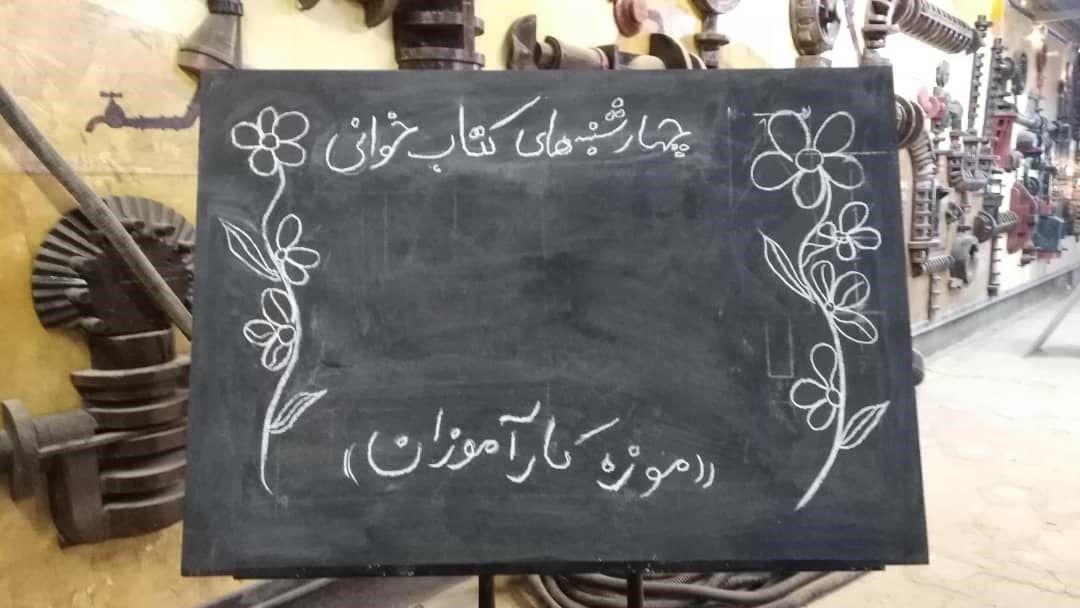 چهارشنبه‌های کتاب خوانی
((موزه کارآموزان))